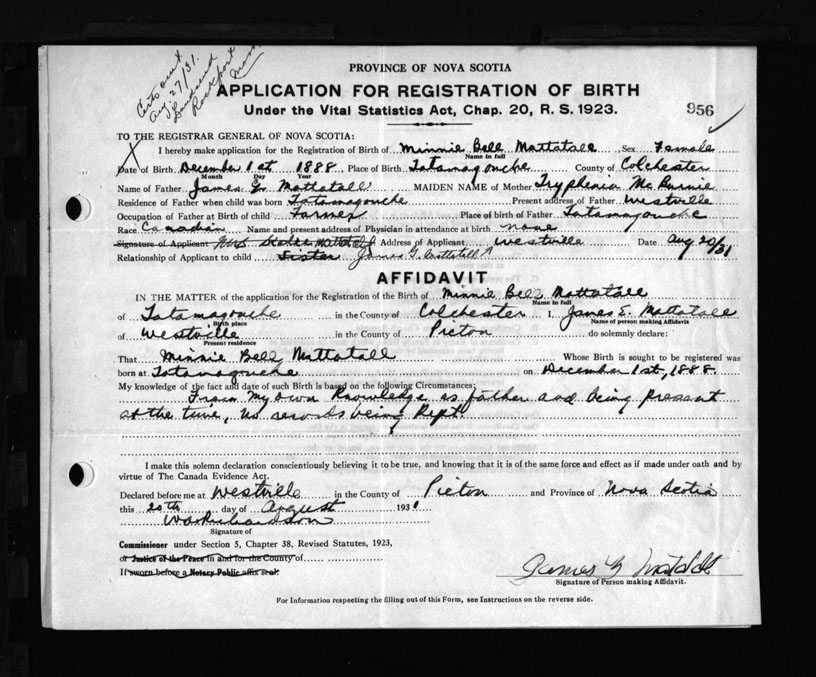 Certs sent
Aug 27/31.
Rockport
PROVINCE OF NOVA SCOTIA
APPLICATION FOR REGISTRATION OF BIRTH
Under the Vital Statistics Act, Chap. 20, R. S. 1923.
956
TO THE REGISTRAR GENERAL OF NOVA SCOTIA:
I hereby make application for the Registration of Birth of Minnie Bell Mattatall Sex Female
Name in full
Date of Birth December 1st 1888 Place of Birth Tatamagouche County of Colchester
Month Day Year
Name of Father James G. Mattatall MAIDEN NAME of Mother Tryphenia McBurnie
Residence of Father when child was born Tatamagouche Present address of Father Westville
Occupation of Father at Birth of child Farmer Place of Birth of Father Tatamagouche
Race Canadian Name and present address of Physician in attendance at birth none
Signature of Applicant Mrs Mattatall Address of Applicant Westville Date Aug 20/31
Relationship of Applicant to child Sister James G. Mattatall
AFFIDAVIT
IN THE MATTER of the application for the Registration of the Birth of Minnie Bell Mattatall
Name in full
of Tatamagouche in the County of Colchester I, James E. Mattatall
Birth place Name of person making Affidavit
of Westville in the County of Picton do solemnly declare:
Present residence
That Minnie Bell Mattatall Whose Birth is sought to be registered was
born at Tatamagouche on December 1st, 1888.
My knowledge of the fact and date of such Birth is based on the following Circumstances:
From my own knowledge as father and being present
at the time, no records being kept
I make this solemn declaration conscientiously believing it to be true, and knowing that it is of the same force and effect as if made under oath and by
virtue of The Canada Evidence Act.
Declared before me at Westville in the County of Picton and Province of Nova Scotia
this 20th day of August 1931
W Richardson
Signature of
Commissioner under Section 5, Chapter 38, Revised Statutes, 1923,
or Justice of the Peace in and for the County of
If sworn before a Notary Public affix seal.
James G Mattatll
Signature of Person making Affidavit.
For Information respecting the filling out of this Form, see Instructions on the reverse side.